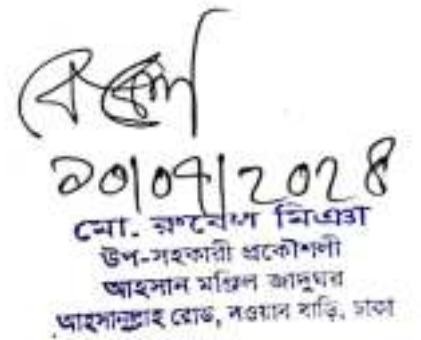 ২০/০৭/২০২৪
মো. রুবেল মিঞা
উপ-সহকারী প্রকৌশলী
আহসান মঞ্জিল জাদুঘর
আহসানুল্লাহ রোড, নওয়াব বাড়ি, ঢাকা